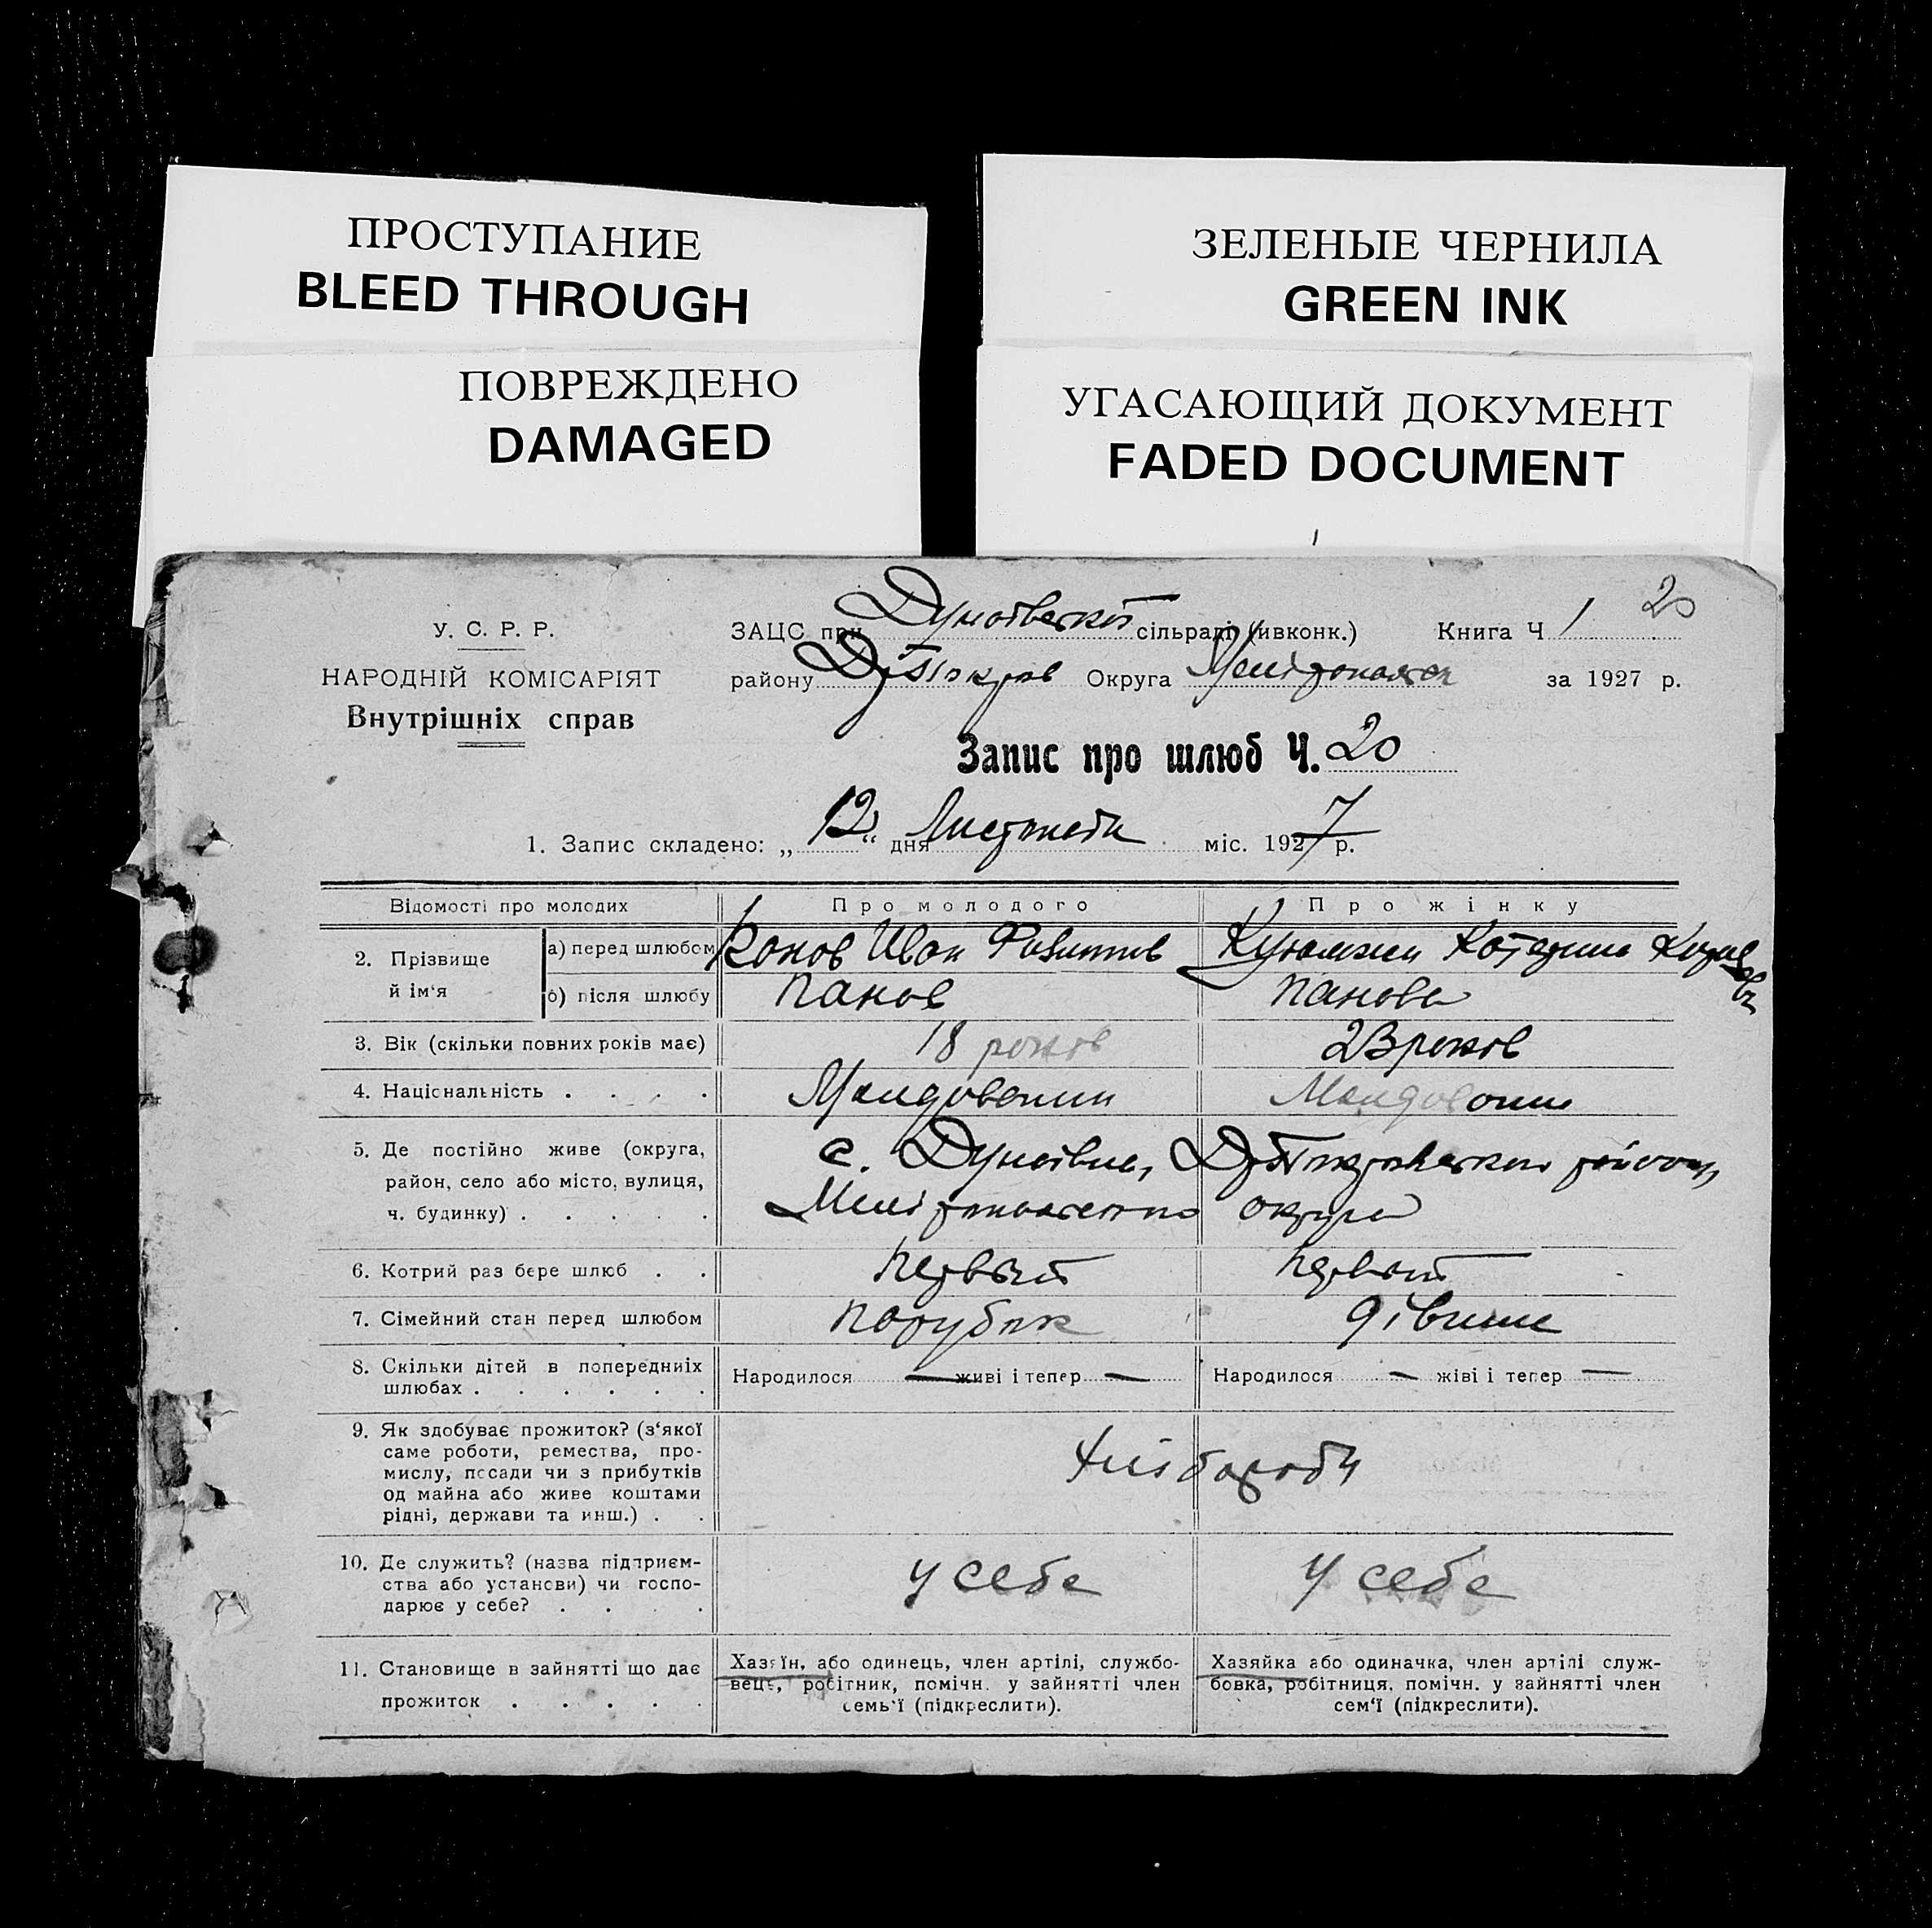 ПРОСТУПАНИЕ
BLEED THROUGH
ЗЕЛЕНЫЕ ЧЕРНИЛА
GREEN INK
ПОВРЕЖДЕНО
DAMAGED
УГАСАЮЩИЙ ДОКУМЕНТ
FADED DOCUMENT
20
У. С. Р. Р.
НАРОДНІЙ КОМІСАРІЯТ
Внутрішніх справ
ЗАЦС при Дунаївській сільраді (ивконк.) Книга Ч 1
району Округа за 1927 р.
Запис про шлюб Ч. 20
1. Запис складено: „12“ дня Листопада міс. 1927 р.
Відомості про молодих
Про молодого
Про жінку
2. Прізвище й ім'я
а) перед шлюбом
Іван
Катерина
б) після шлюбу
Панов
Панова
3. Вік (скільки повних років має)
18 роков
23 роков
4. Національність . . . .
Молдованин
5. Де постійно живе (округа,
район, село або місто, вулиця,
ч. будинку) . . . . .
с. Дунаївка,
округи
6. Котрий раз бере шлюб . .
первый
первый
7. Сімейний стан перед шлюбом
парубок
дівчина
8. Скільки дітей в попередниіх
шлюбах . . . . . .
Народилося — живі і тепер —
Народилося — жіві і тепер —
9. Як здобуває прожиток? (з'якої
саме роботи, ремества, про-
мислу, посади чи з прибутків
од майна або живе коштами
рідні, держави та инш.) . .
хлібороби
10. Де служить? (назва підприєм-
ства або установи) чи госпо-
дарює у себе? . . . .
у себе
у себе
11. Становище в зайнятті що дає
прожиток . . . . .
Хазяїн, або одинець, член артілі, службо-
вець, робітник, помічн. у зайнятті член
семь'ї (підкреслити).
Хазяйка або одиначка, член артілі служ-
бовка, робітниця, помічн. у зайнятті член
сем'ї (підкреслити).